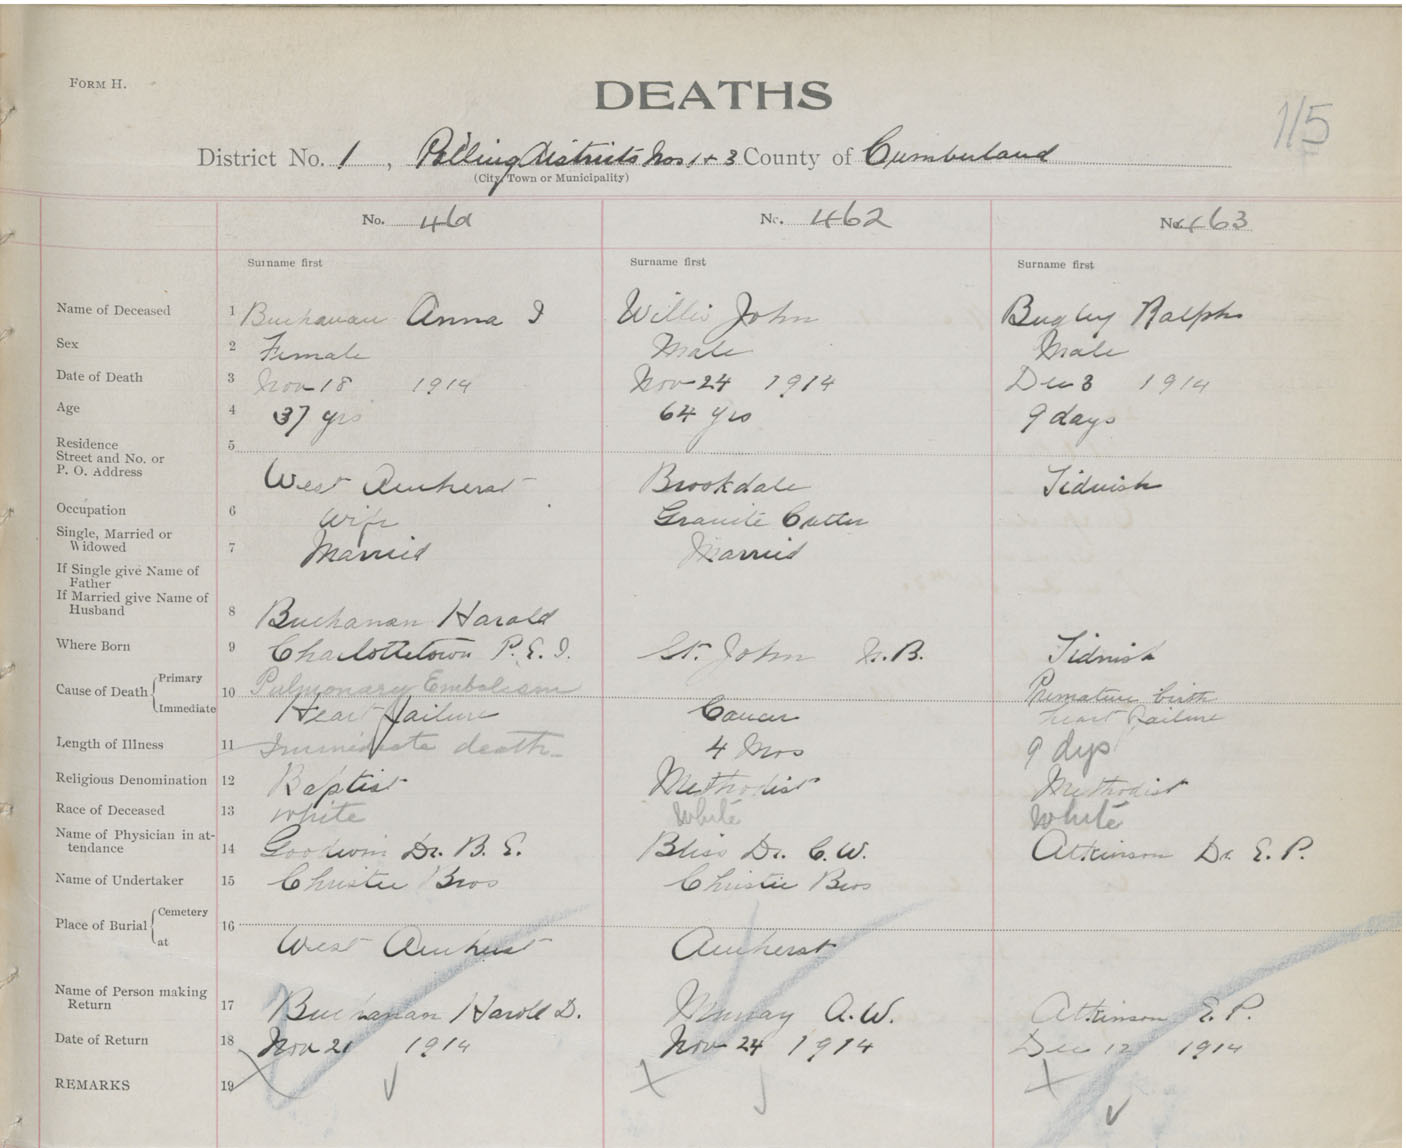 FORM H.
DEATHS
115
District No. 1, Polling Districts Nos 1 + 3 County of Cumberland
(City, Town or Municipality)
No. 461 No. 462 No. 463
Surname first Surname first Surname first
Name of Deceased 1 Buchanan Anna I Willis John Bugley Ralph
Sex 2 Female Male Male
Date of Death 3 Nov 18 1914 Nov 24 1914 Dec 3 1914
Age 4 37 yrs 64 yrs 9 days
Residence 5
Street and No. or
P. O. Address West Amherst Brookdale Tidnish
Occupation 6 Wife Granite Cutter
Single, Married or
Widowed 7 Married Married
If Single give Name of
Father
If Married give Name of
Husband 8 Buchanan Harold
Where Born 9 Charlottetown P.E.I. St. John N.B. Tidnish
Cause of Death Primary 10 Pulmonary Embolism Premature birth
Immediate Heart failure Cancer heart failure
Length of Illness 11 Immediate death 4 Mos 9 dys
Religious Denomination 12 Baptist Methodist Methodist
Race of Deceased 13 white White White
Name of Physician in at-
tendance 14 Goodwin Dr. B. E. Bliss Dr. C. W. Atkinson Dr. E. P.
Name of Undertaker 15 Christie Bros Christie Bros
Place of Burial Cemetery 16
at West Amherst Amherst
Name of Person making
Return 17 Buchanan Harold D. Murray A. W. Atkinson E. P.
Date of Return 18 Nov 21 1914 Nov 24 1914 Dec 12 1914
REMARKS 19